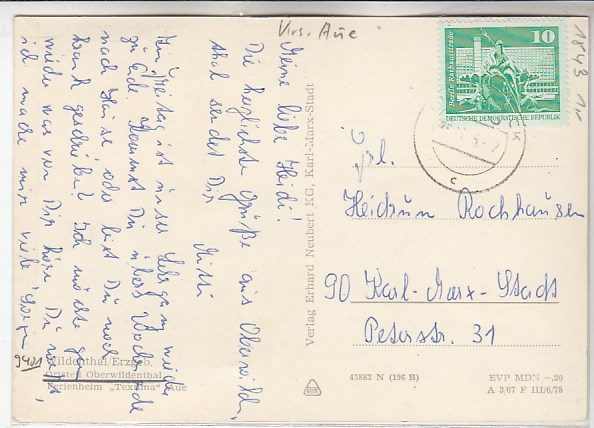 Vrs. Aue
1843 
Meine liebe Heidi!
Die herzlichste Grüße aus Oberwilden,
thal sendet Dir
Mutti
Am Freitag ist unser Lehrgang wieder
zu Ende. Kommst Du übers Wochenende
nach Hause oder bist Du noch
krank geschrieben? Ich möchte gern
wieder was von Dir hören, Du weißt,
ich mache mir viele Sorgen
9401 Wildenthal/Erzgeb.
Ortsteil Oberwildenthal
Ferienheim "Textima" Aue
Verlag Erhard Neubert KG, Karl-Marx-Stadt
10
Berlin, Rathausstraße
DEUTSCHE DEMOKRATISCHE REPUBLIK
c
Frl.
Heidrun Rochhausen
90 Karl-Marx-Stadt
Peterstr. 31
45882 N (196 B)
EVP MDN –,20
A 3/67 F III/6/75